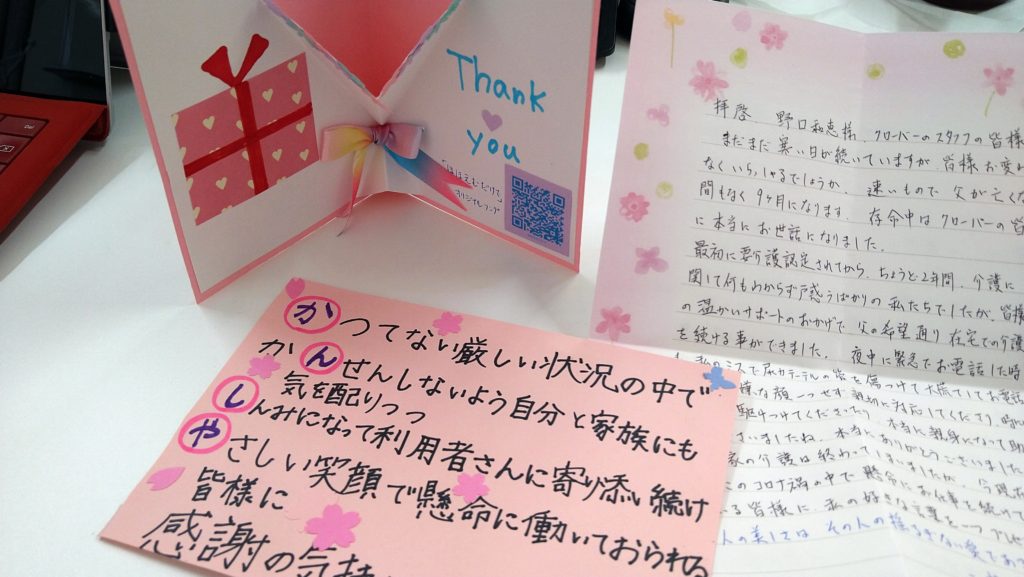 Thank
you
ほほえむとりで
オリジナルフード
かつてない厳しい状況の中で
かんせんしないよう自分と家族にも
気を配りつつ
しんみになって利用者さんに寄り添い続け
やさしい笑顔で懸命に働いておられる
皆様に
感謝の気持
拝啓 野口和恵様 クローバーのスタッフの皆様
まだまだ寒い日が続いていますが 皆様お変わ
なくいらっしゃるでしょうか。速いもので 父が亡くな
間もなく9ヶ月になります。存命中はクローバーの皆
に本当にお世話になりました。
最初に要介護認定されてから、ちょうど2年間、介護に
関して何もわからず戸惑うばかりの私たちでしたが、皆様
の温かいサポートのおかげで 父の希望通り在宅での介護
を続ける事ができました。 夜中に緊急でお電話した時
私のミスで尿カテーテルの管を傷つけて大慌てでお電話
な顔一つせず 親切に対応してくださり
駆けつけてくださったり 本当に親身になって助
いましたね。本当にありがとうございました
の介護は終わってしまいましたが、今現在
このコロナ禍の中で 懸命にお仕事を続けて
いる皆様に 私の好きな言葉を一つ
人の美しさは その人の